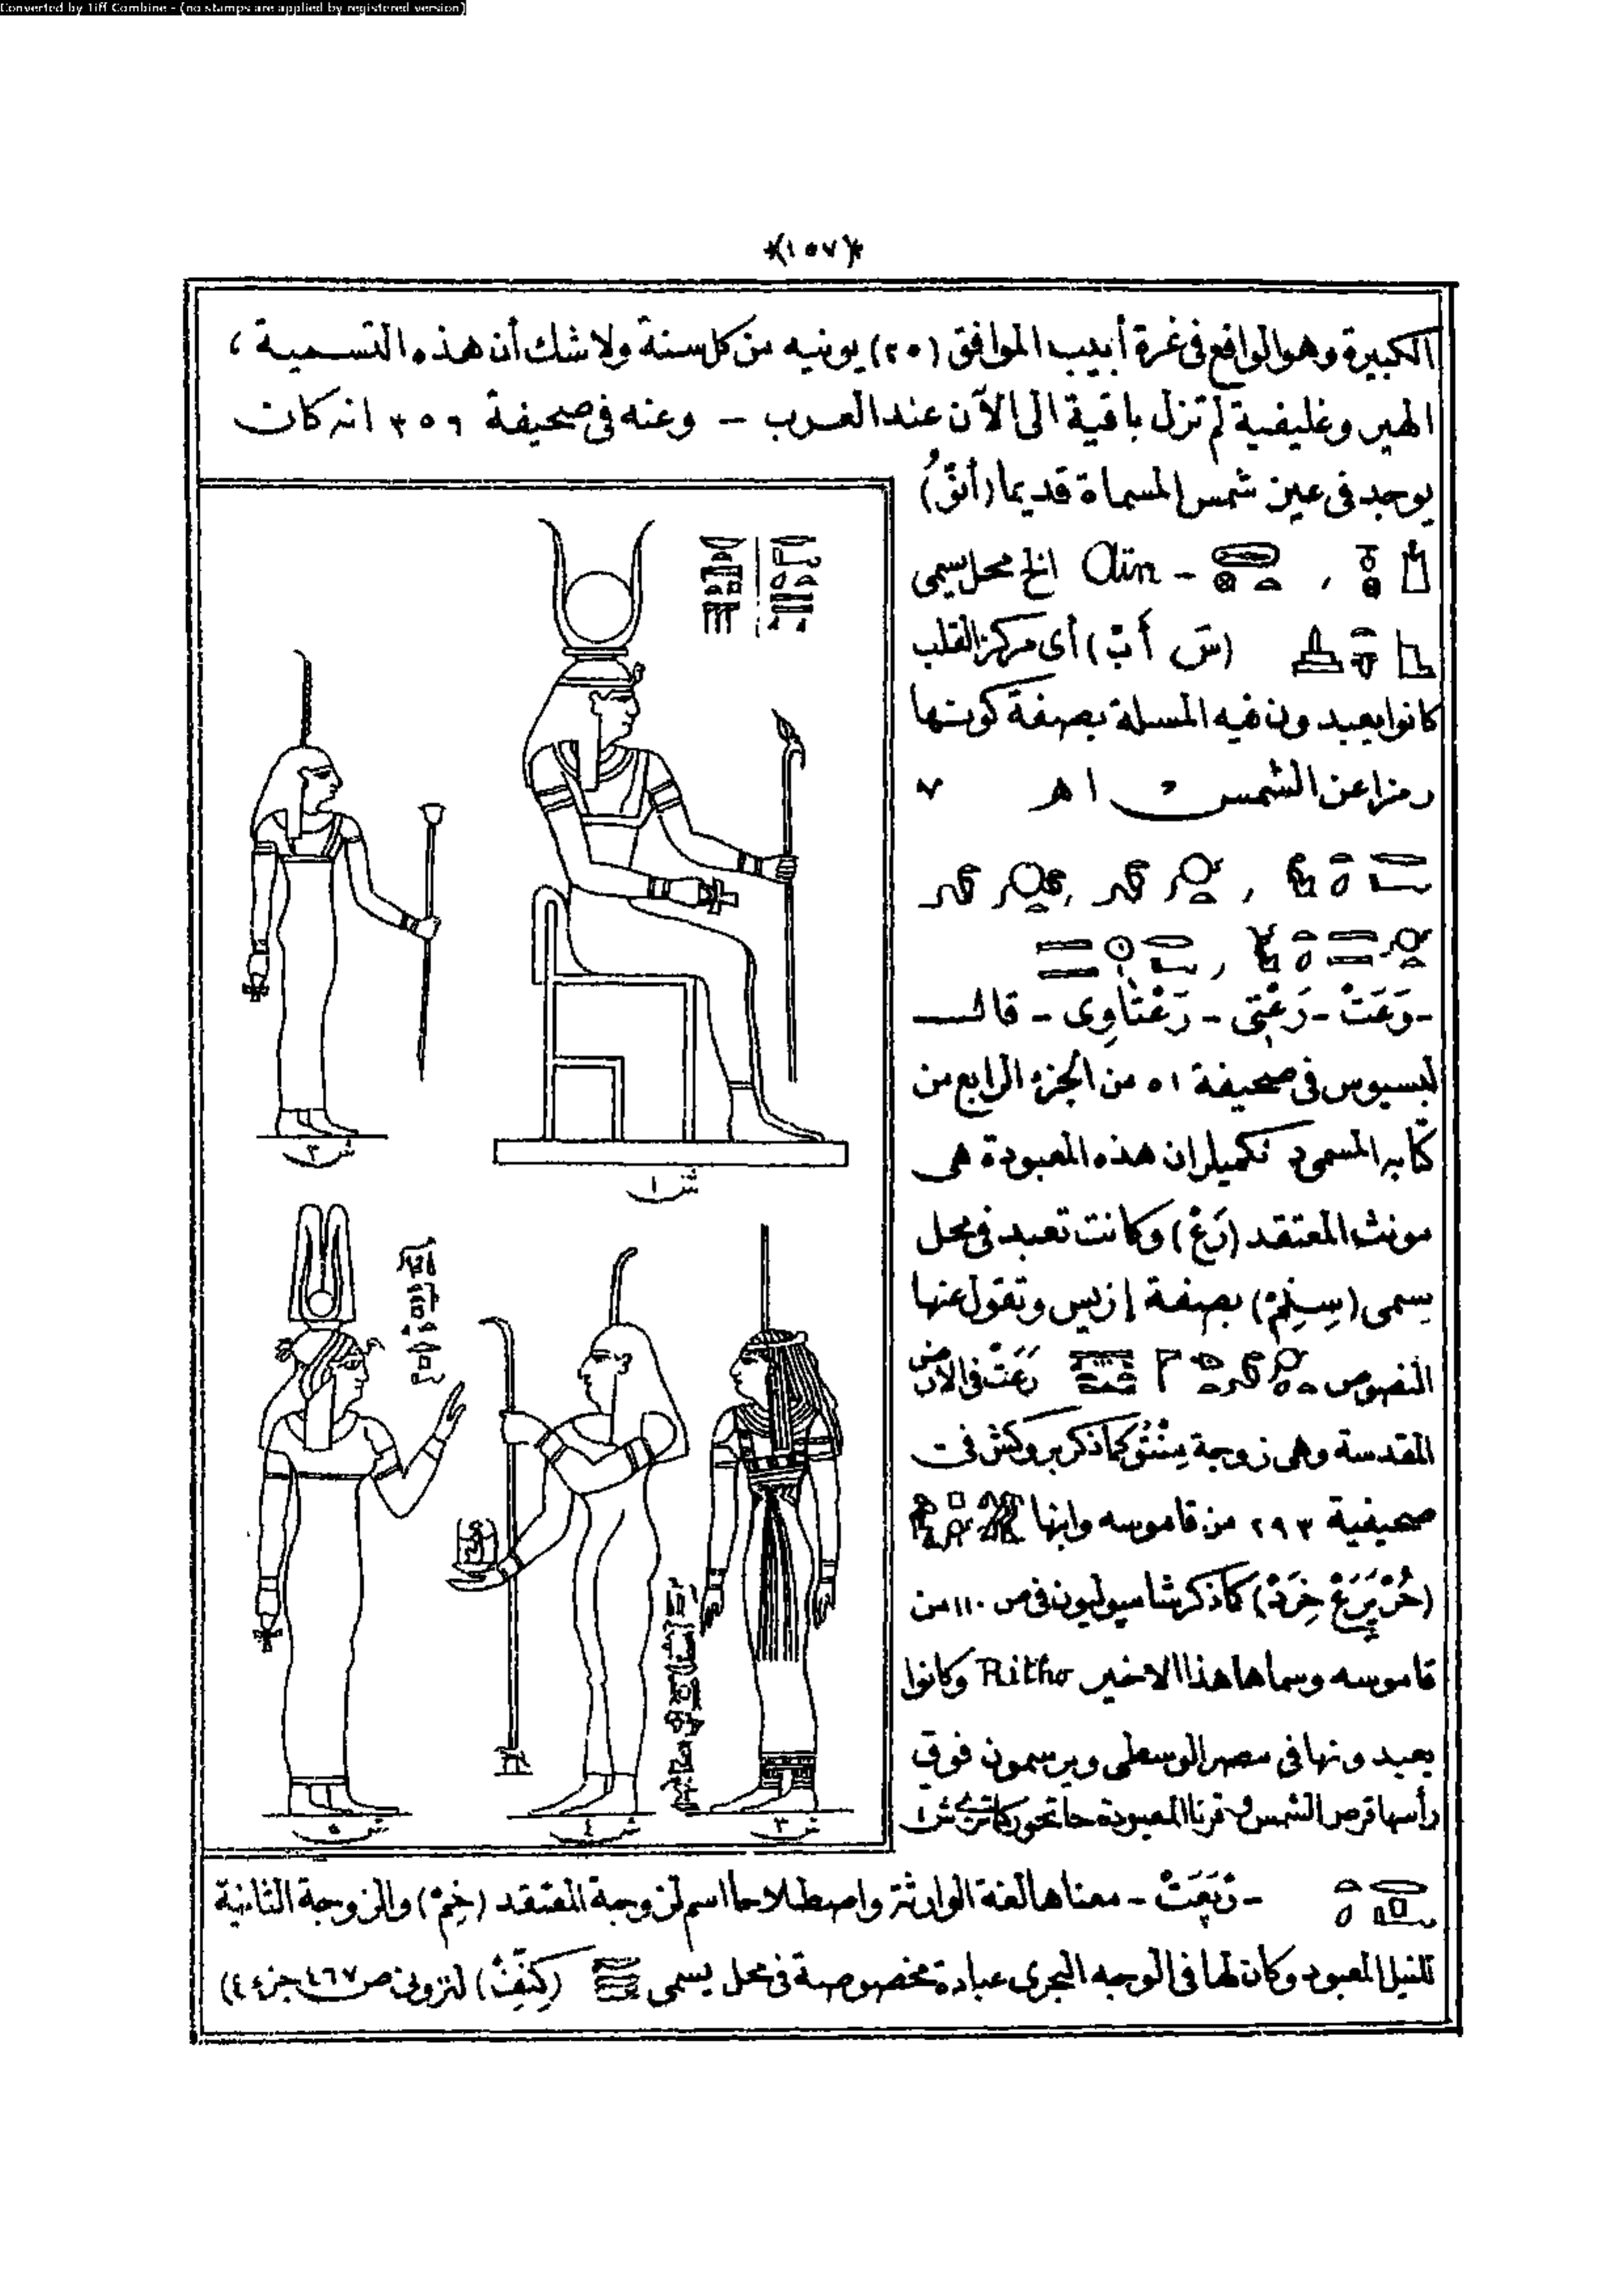 Converted by Tiff Combine - (no stamps are applied by registered version)
*(١٥٧)*
الكبيرة وهو الواقع فى غرة أبيب الموافق (٢٥) يونيه من كل سنة ولا شك أن هذه التسمية ،
الهيروغليفية لم تزل باقية الى الآن عند العرب - وعنه فى صحيفة ٣٥٦ انه كان
يوجد فى عين شمس المسماة قديما (أنُ)
- الخ محل يسمى
(سَ أَبْ) أى مركز القلب
كانوا يعبدون فيه المسلة بصفة كونها
رمزا عن الشمس ا ه
- رَعْتِى - رَعْتَاوِى - قال
لبسيوس فى صحيفة ٥١ من الجزء الرابع من
كتابه المسمى د نكميلر ان هذه المعبودة هى
مونث المعتقد (رَعْ) وكانت تعبد فى محل
يسمى بصفة إزيس وتقول عنها
النصوص رَعَتْ فى الارض
المقدسة وهى زوجة كما ذكر بروكش فى
صحيفية ٢٩٣ من قاموسه وابنها
كما ذكر شامبوليون فى ص ١١٠ من
قاموسه وسماها هذا الاخير Ritho وكانوا
يعبدونها فى مصر الوسطى ويرسمون فوق
رأسها قرص الشمس وقرنا المعبودة حاتحور كما ترى ش ١
ش ١
ش ٢
ش ٣
ش ٤
ش ٥
- - معناها لغة الوارثة واصطلاحا اسم لزوجة المعتقد (خِمْ) والزوجة الثانية
للنيل المعبود وكان لها فى الوجه البحرى عبادة مخصوصة فى محل يسمى لنزونى ص ٤٦٧ جزء ٤)